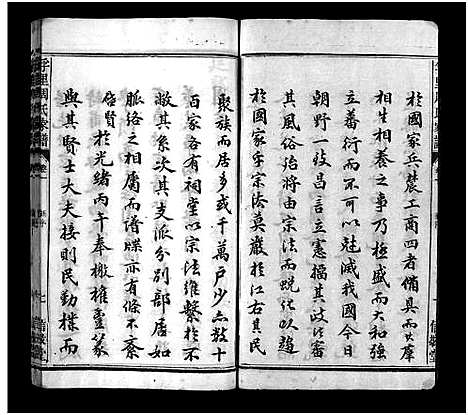 於國家兵農工商四者備具而羣
相生相養之事乃極盛大和強
立蕃衍而不可以尅滅我國今日
朝野一致昌言立憲擾攘而審
其風俗治將由宗法而蛻化以趨
於國家乎宗法莫嚴於江右其民
聚族而居多或千萬戶少亦數十
百家各有祠堂以宗法維繫於不
敝其系次其支派分別部居如
脈絡之相屬而譜牒亦有條不紊
啓賢於光緒丙午奉檄榷壹篆
與其賢士大夫接則民動檏而
七